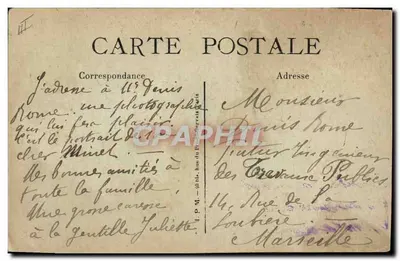 III
CARTE POSTALE
Correspondance
Adresse
J'adresse à Mr Denis
Rome une photographie
qui lui fera plaisir
c'est le portrait des
cher Minet.
Mes bonnes amitiés à
toute la famille.
Une grosse caresse
à la gentille Juliette
Monsieur
Denis Rome
futur Ingénieur
des Travaux Publics
14, Rue de la
Loubière
Marseille
CPARAMA